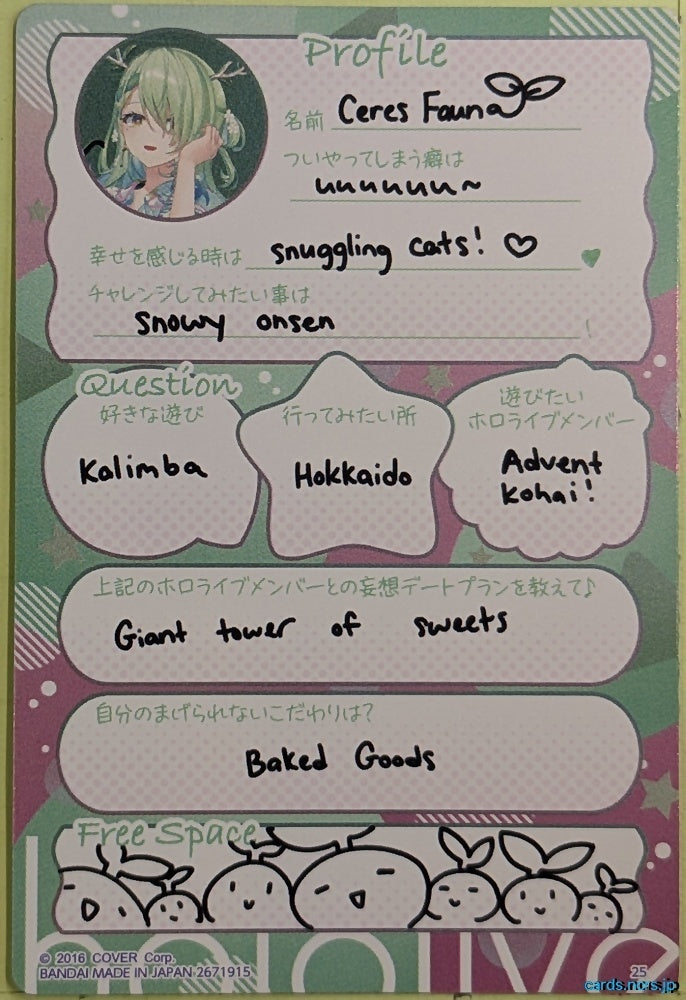 Profile
名前 Ceres Fauna
ついやってしまう癖は
uuuuuuu~
幸せを感じる時は snuggling cats! ♡
チャレンジしてみたい事は
Snowy onsen
Question
好きな遊び
Kalimba
行ってみたい所
Hokkaido
遊びたい
ホロライブメンバー
Advent
Kohai!
上記のホロライブメンバーとの妄想デートプランを教えて♪
Giant tower of sweets
自分のまげられないこだわりは?
Baked Goods
Free Space
hololive
© 2016 COVER Corp.
BANDAI MADE IN JAPAN 2671915
25
cards.ncrs.jp